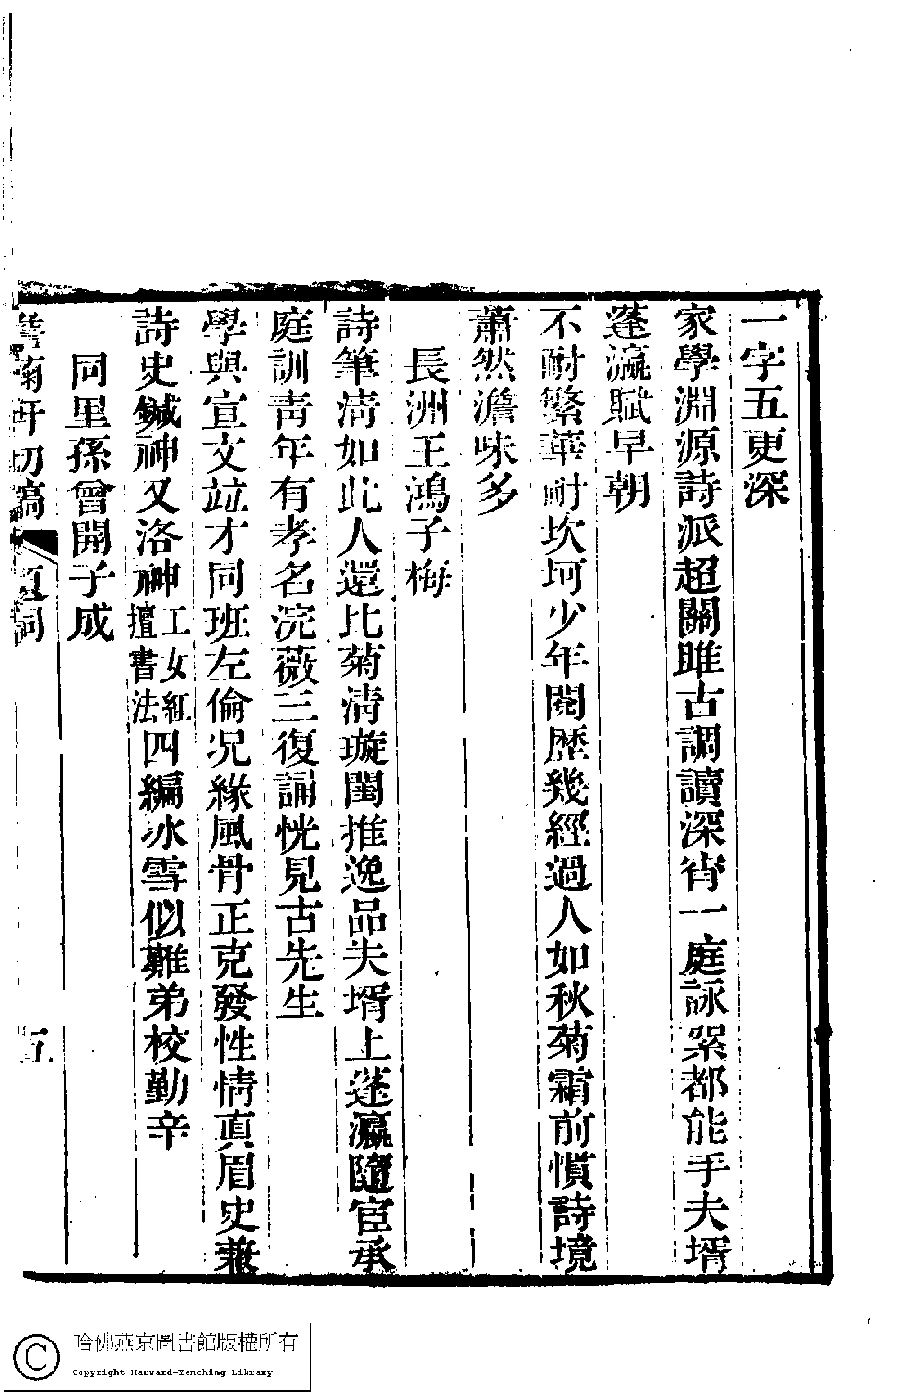 一字五更深
家學淵源詩派超關雎古調讀深宵一庭詠絮都能手夫壻
蓬瀛賦早朝
不耐繁華耐坎坷少年閱歷幾經過人如秋菊霜前慣詩境
蕭然澹味多
長洲王鴻子梅
詩筆淸如此人還比菊淸璇閨推逸品夫壻上蓬瀛隨宦承
庭訓靑年有孝名浣薇三復誦恍見古先生
學與宣文竝才同班左倫況緣風骨正克發性情眞眉史兼
詩史鍼神又洛神工女紅擅書法四編冰雪似難弟校勤辛
同里孫曾開子成
菊軒初稿 題詞 五
哈佛燕京圖書館版權所有
Copyright Harvard-Yenching Library